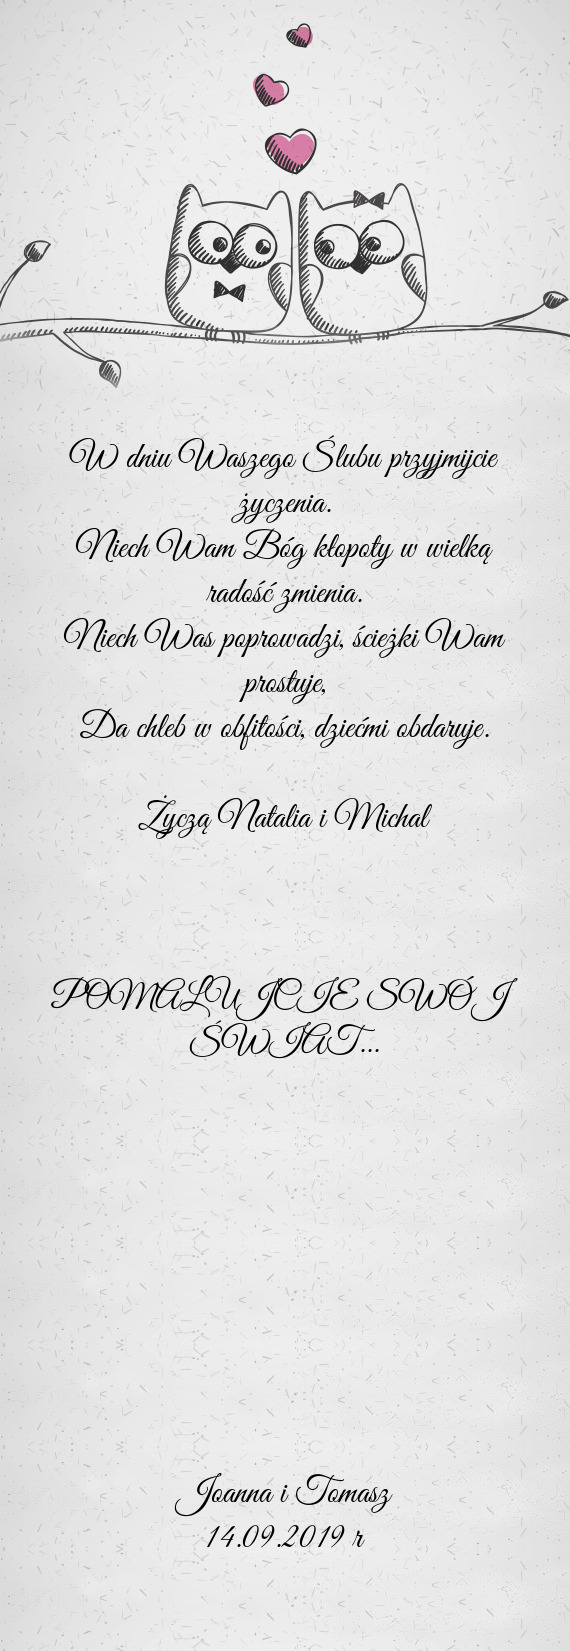 W dniu Waszego Ślubu przyjmijcie
życzenia.
Niech Wam Bóg kłopoty w wielką
radość zmienia.
Niech Was poprowadzi, ścieżki Wam
prostuje,
Da chleb w obfitości, dziećmi obdaruje.
Życzą Natalia i Michal
POMALUJCIE SWÓJ
ŚWIAT...
Joanna i Tomasz
14.09.2019 r